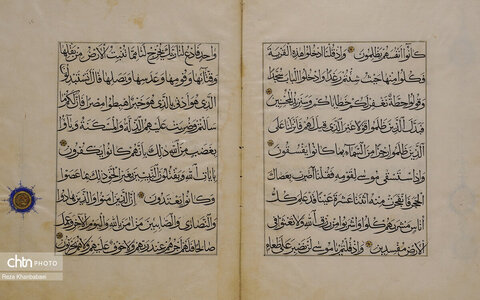 كَانُوا أَنْفُسَهُمْ يَظْلِمُونَ وَإِذْ قُلْنَا ادْخُلُوا هَذِهِ الْقَرْيَةَ
فَكُلُوا مِنْهَا حَيْثُ شِئْتُمْ رَغَدًا وَادْخُلُوا الْبَابَ سُجَّدًا
وَقُولُوا حِطَّةٌ نَغْفِرْ لَكُمْ خَطَايَاكُمْ وَسَنَزِيدُ الْمُحْسِنِينَ
فَبَدَّلَ الَّذِينَ ظَلَمُوا قَوْلًا غَيْرَ الَّذِي قِيلَ لَهُمْ فَأَنْزَلْنَا عَلَى
الَّذِينَ ظَلَمُوا رِجْزًا مِنَ السَّمَاءِ بِمَا كَانُوا يَفْسُقُونَ
وَإِذِ اسْتَسْقَى مُوسَى لِقَوْمِهِ فَقُلْنَا اضْرِبْ بِعَصَاكَ
الْحَجَرَ فَانْفَجَرَتْ مِنْهُ اثْنَتَا عَشْرَةَ عَيْنًا قَدْ عَلِمَ كُلُّ
أُنَاسٍ مَشْرَبَهُمْ كُلُوا وَاشْرَبُوا مِنْ رِزْقِ اللَّهِ وَلَا تَعْثَوْا فِي
الْأَرْضِ مُفْسِدِينَ وَإِذْ قُلْتُمْ يَا مُوسَى لَنْ نَصْبِرَ عَلَى طَعَامٍ
وَاحِدٍ فَادْعُ لَنَا رَبَّكَ يُخْرِجْ لَنَا مِمَّا تُنْبِتُ الْأَرْضُ مِنْ بَقْلِهَا
وَقِثَّائِهَا وَفُومِهَا وَعَدَسِهَا وَبَصَلِهَا قَالَ أَتَسْتَبْدِلُونَ
الَّذِي هُوَ أَدْنَى بِالَّذِي هُوَ خَيْرٌ اهْبِطُوا مِصْرًا فَإِنَّ لَكُمْ مَا
سَأَلْتُمْ وَضُرِبَتْ عَلَيْهِمُ الذِّلَّةُ وَالْمَسْكَنَةُ وَبَاؤُا
بِغَضَبٍ مِنَ اللَّهِ ذَلِكَ بِأَنَّهُمْ كَانُوا يَكْفُرُونَ
بِآيَاتِ اللَّهِ وَيَقْتُلُونَ النَّبِيِّينَ بِغَيْرِ الْحَقِّ ذَلِكَ بِمَا عَصَوْا
وَكَانُوا يَعْتَدُونَ إِنَّ الَّذِينَ آمَنُوا وَالَّذِينَ هَادُوا
وَالنَّصَارَى وَالصَّابِئِينَ مَنْ آمَنَ بِاللَّهِ وَالْيَوْمِ الْآخِرِ وَعَمِلَ
صَالِحًا فَلَهُمْ أَجْرُهُمْ عِنْدَ رَبِّهِمْ وَلَا خَوْفٌ عَلَيْهِمْ وَلَا هُمْ يَحْزَنُونَ
chtn PHOTO
Reza Khanbabaei